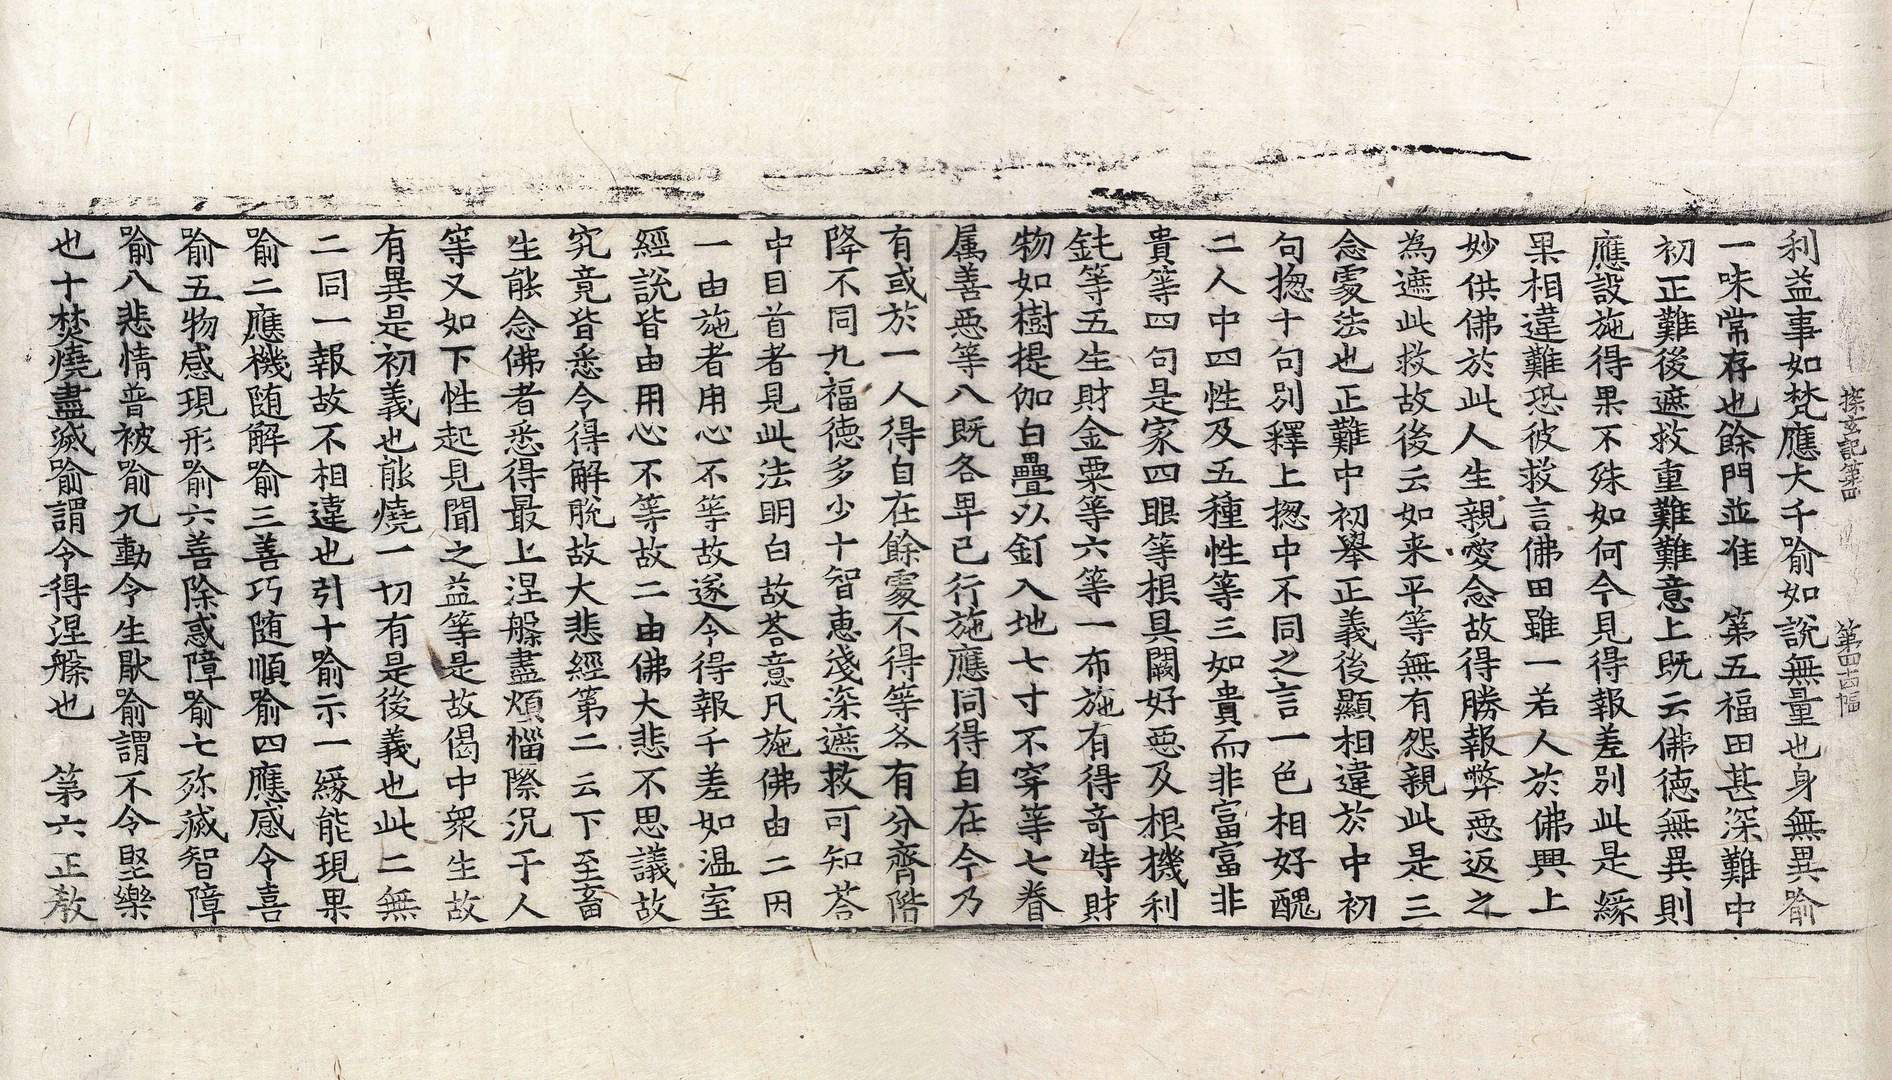 探玄記第四
第四十四幅
利益事如梵應大千喻如說無量也身無異喻
一味常存也餘門並准　第五福田甚深難中
初正難後遮救重難難意上既云佛德無異則
應設施得果不殊如何今見得報差別此是緣
果相違難恐彼救言佛田雖一若人於佛興上
妙供佛於此人生親愛念故得勝報弊惡返之
為遮此救故後云如来平等無有怨親此是三
念處法也正難中初舉正義後顯相違於中初
句揔十句別釋上揔中不同之言一色相好醜
二人中四性及五種性等三如貴而非富富非
貴等四句是家四眼等根具闕好惡及根機利
鈍等五生財金粟等六等一布施有得奇特財
物如樹提伽白疊以釘入地七寸不穿等七眷
属善惡等八既各早已行施應同得自在今乃
有或於一人得自在餘處不得等各有分齊階
降不同九福德多少十智惠淺深遮救可知荅
中目首者見此法明白故荅意凡施佛由二因
一由施者用心不等故遂令得報千差如温室
經說皆由用心不等故二由佛大悲不思議故
究竟皆悉令得解脫故大悲經第二云下至畜
生能念佛者悉得最上涅槃盡煩惱際況于人
等又如下性起見聞之益等是故偈中衆生故
有異是初義也能燒一切有是後義也此二無
二同一報故不相違也引十喻示一緣能現果
喻二應機随解喻三善巧随順喻四應感令喜
喻五物感現形喻六善除惑障喻七殄滅智障
喻八悲情普被喻九動令生猒喻謂不令堅樂
也十焚燒盡滅喻謂令得涅槃也　第六正教